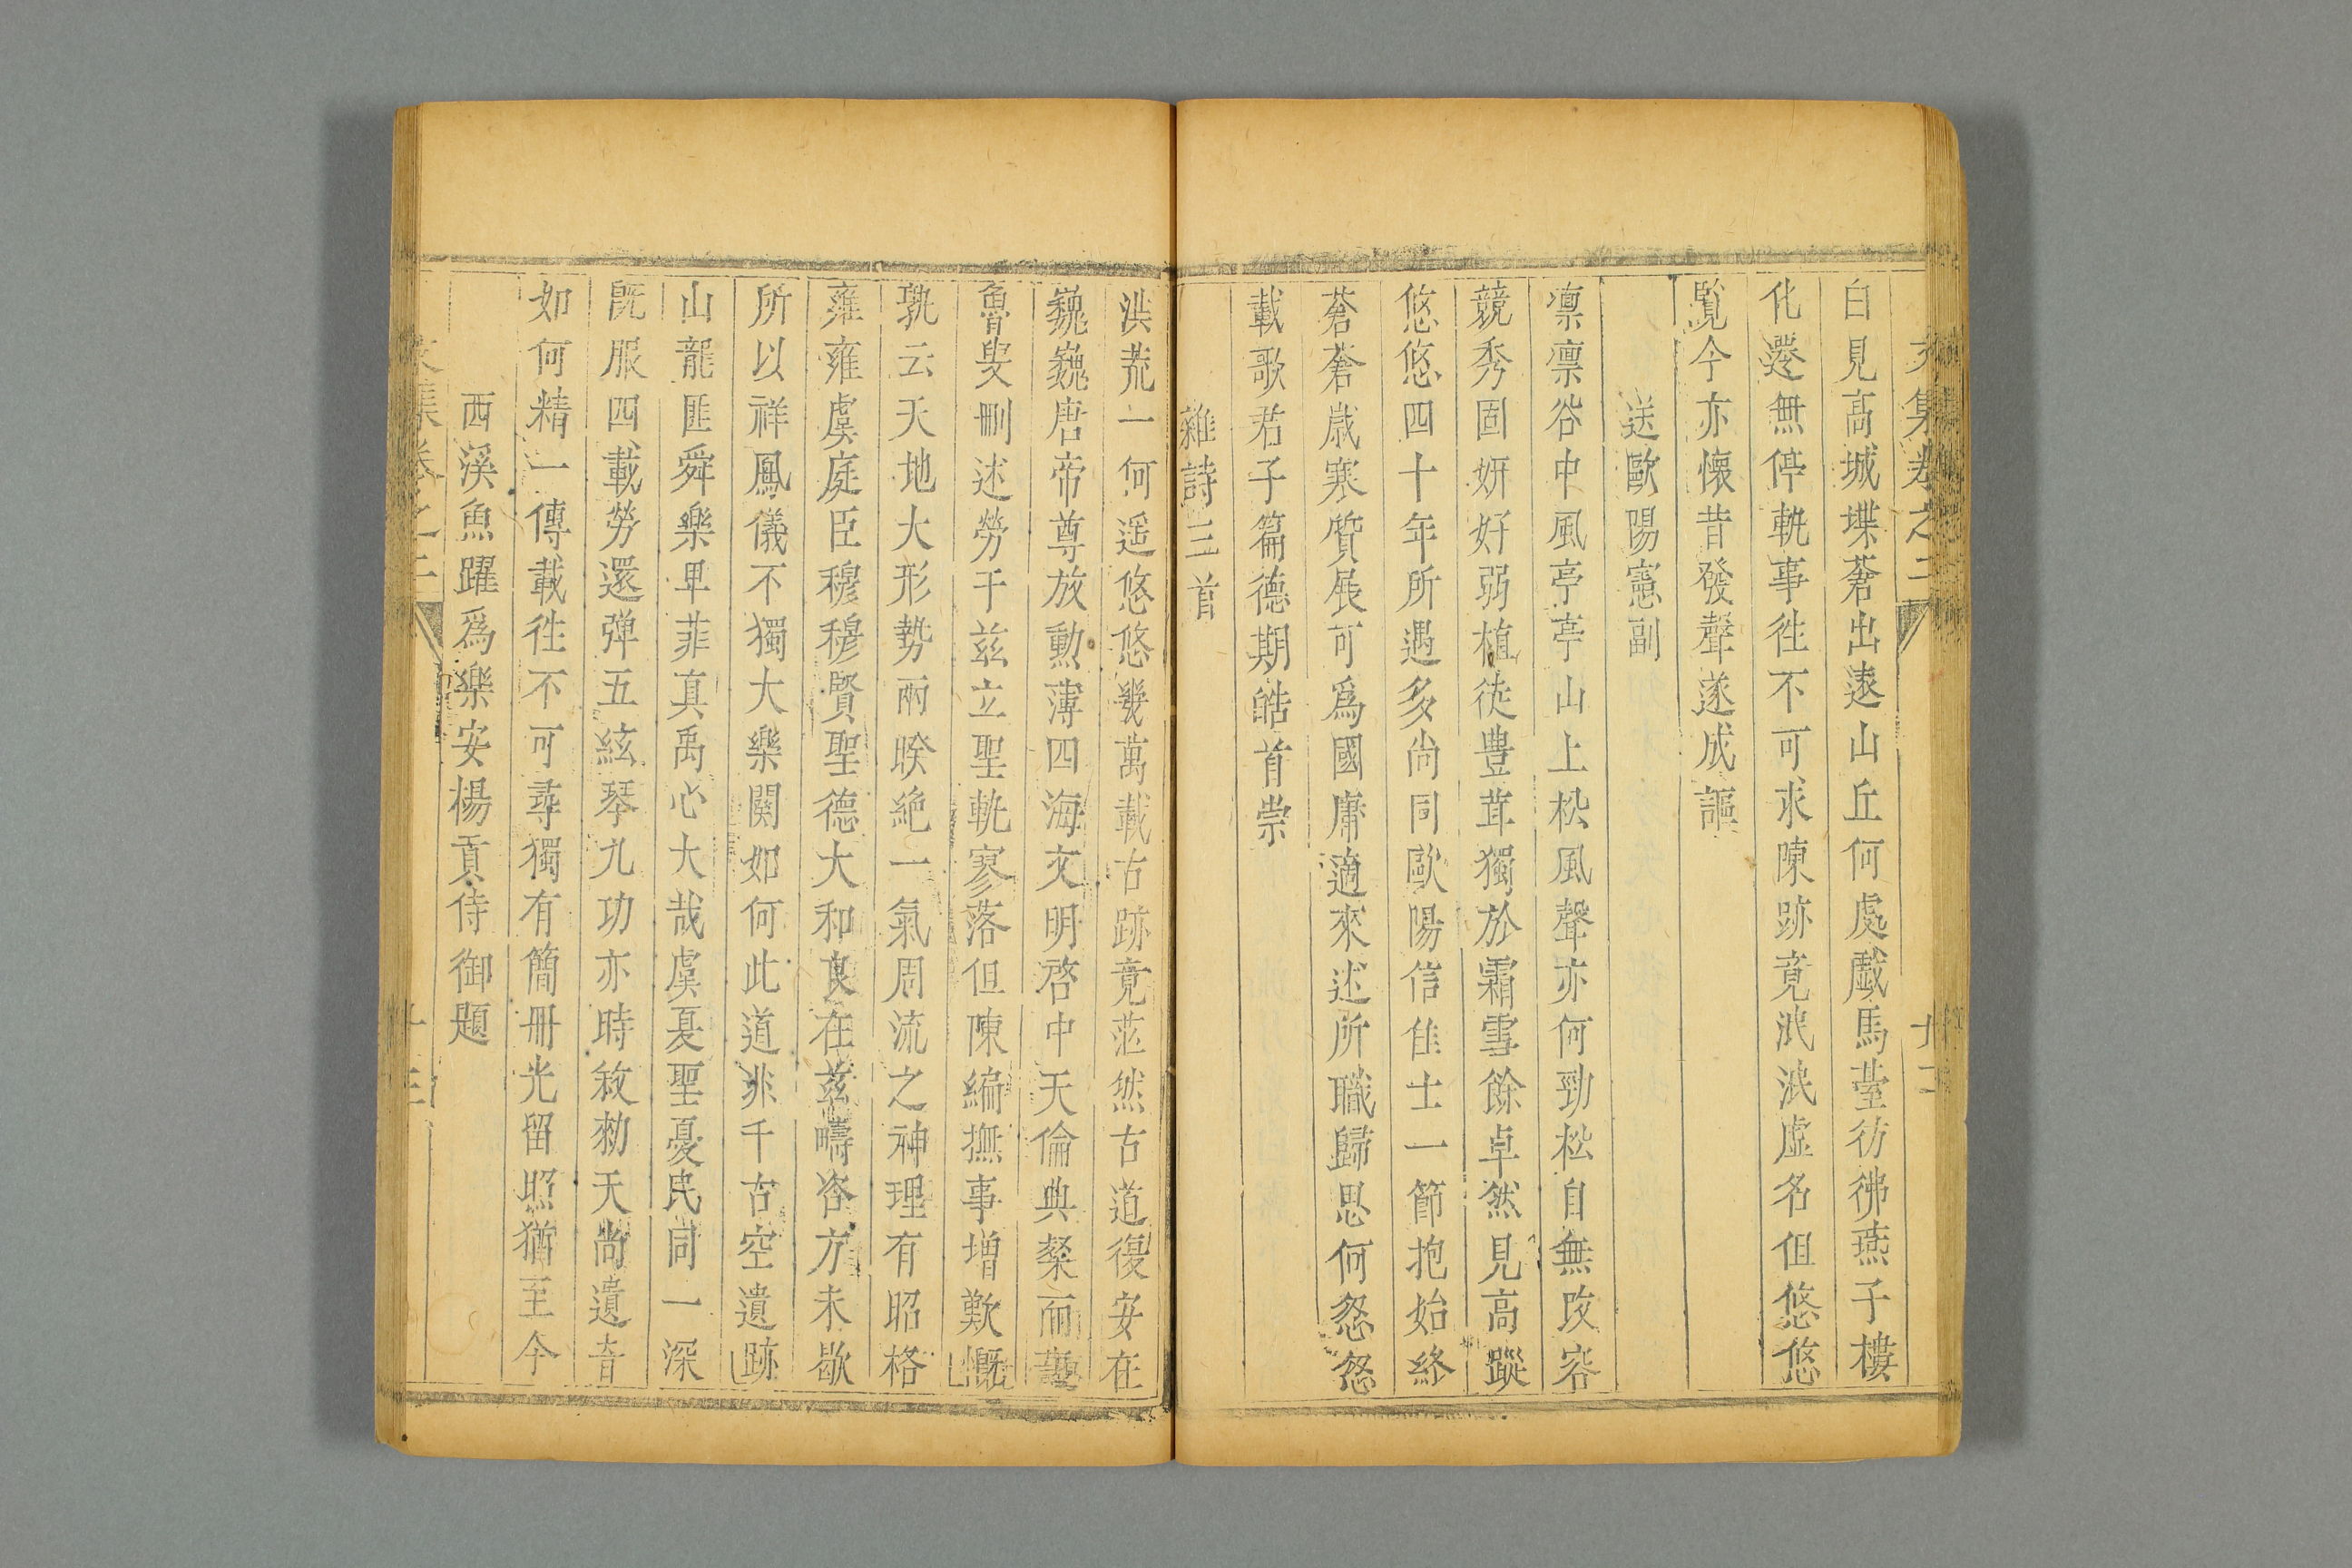 文集卷之二
十二
白見髙城堞蒼出逺山丘何處戯馬臺彷彿燕子樓
化遷無停軌事徃不可求陳跡竟泯泯虛名但悠悠
覧今亦懐昔發聲遂成謳
送歐陽憲副
凛凛谷中風亭亭山上松風聲亦何勁松自無攺容
競秀固妍好弱植徒豊茸獨於霜雪餘卓然見高蹤
悠悠四十年所遇多尚同歐陽信佳士一節抱始終
蒼蒼嵗寒質展可爲國庸適來述所職歸思何怱怱
載歌君子篇德期皓首崇
雜詩三首
洪荒一何遥悠悠幾萬載古跡竟茫然古道復安在
巍巍唐帝尊放勳薄四海文明啓中天倫典粲而
魯叟刪述勞千兹立聖軌寥落但陳編撫事增歎慨
孰云天地大形勢兩暌絶一氣周流之神理有昭格
雍雍虞庭臣穆穆賢聖德大和良在兹疇咨方未歇
所以祥鳳儀不獨大樂闋如何此道非千古空遺跡
山龍匪舜樂卑菲真禹心大哉虞夏聖憂民同一深
旣服四載勞還彈五絃琴九功亦時敘勑天尚遺音
如何精一傳載徃不可尋獨有簡冊光留照猶至今
西溪魚躍爲樂安楊貢侍御題
文集卷之二
十三